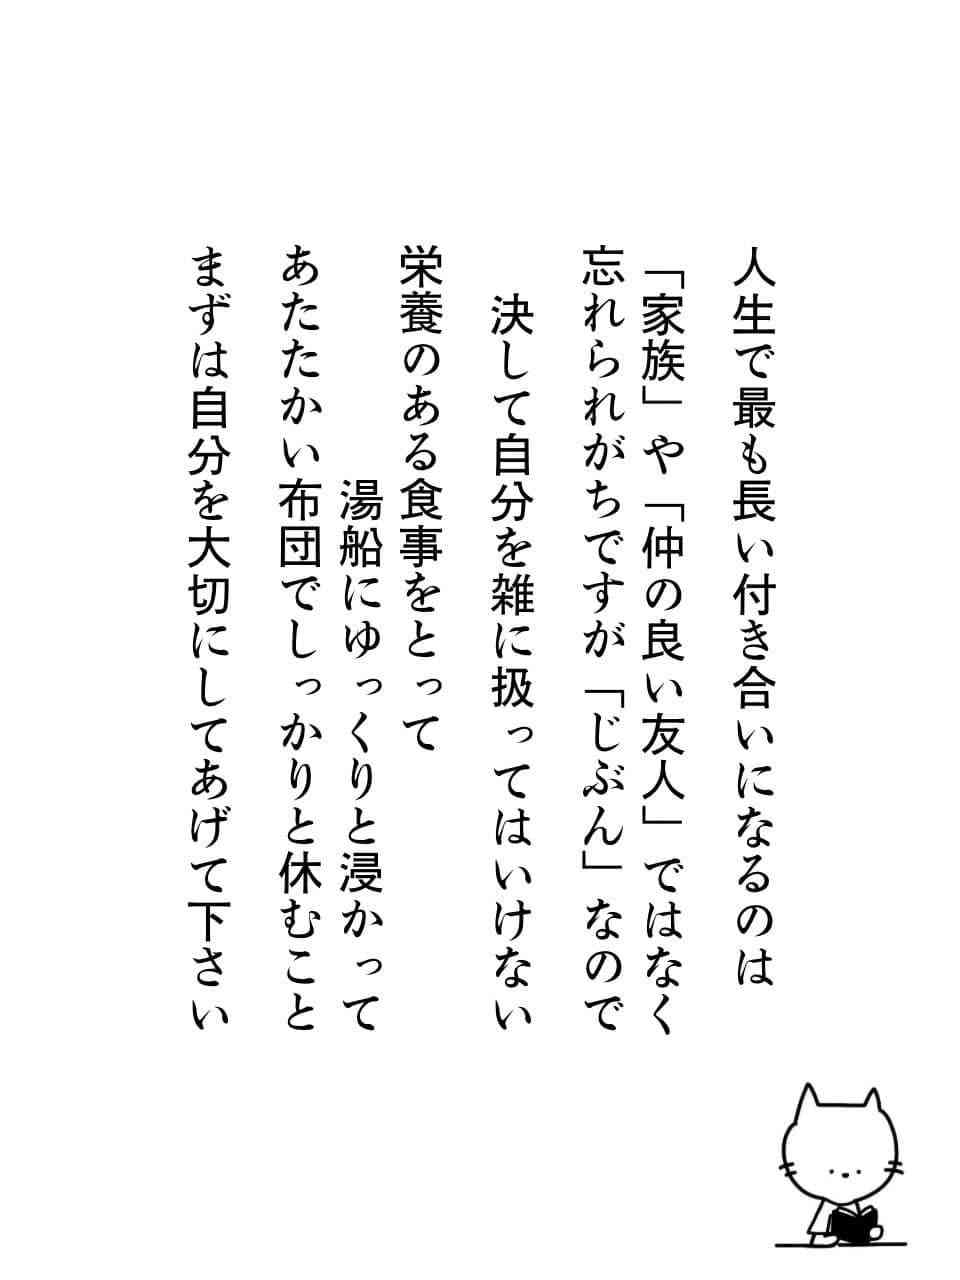 人生で最も長い付き合いになるのは
「家族」や「仲の良い友人」ではなく
忘れられがちですが「じぶん」なので
決して自分を雑に扱ってはいけない
栄養のある食事をとって
湯船にゆっくりと浸かって
あたたかい布団でしっかりと休むこと
まずは自分を大切にしてあげて下さい